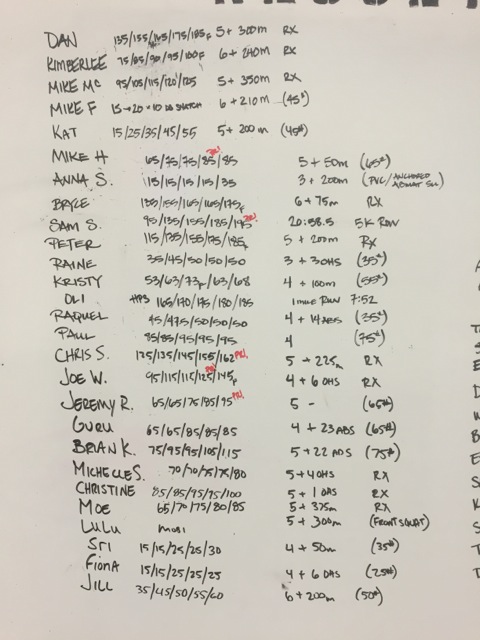 DAN 135/155/165/175/185F 5 + 300m RX
KIMBERLEE 75/85/90/95/100F 6 + 240m RX
MIKE Mc 95/105/115/120/125 5 + 350m RX
MIKE F 15→20→10 DB SNATCH 6 + 210m (45#)
KAT 15/25/35/45/55 5 + 200m (45#)
MIKE H 65/75/75/85/85 5 + 50m (65#)
ANNA S. 15/15/15/15/35 3 + 200m (PVC/ANCHORED
BRYCE 135/155/165/165/175F 6 + 75m RX
SAM S. 95/135/155/185/195 PR! 20:58.5 5K ROW
PETER 115/135/155/175/185F 5 + 200m RX
RAINE 35/45/50/50/50 3 + 3 OHS (35#)
KRISTY 53/63/73F/63/68 4 + 100m (55#)
OLI 165/170/175/180/185 1 mile RUN 7:52
RAQUEL 45/47.5/50/50/50 4 + 14 (35#)
PAUL 85/85/95/95/95 4 (75#)
CHRIS S. 125/135/145/155/162 PR! 5 + 225m RX
JOE W. 95/115/115/125/145F PR! 4 + 6 OHS RX
JEREMY R. 65/65/75/85/95 PR! 5 - (65#)
GURU 65/65/85/85/85 4 + 23 ABS (65#)
BRIAN K. 75/95/95/105/115 5 + 22 ABS (75#)
MICHELLE S. 70/70/75/75/80 5 + 4 OHS RX
CHRISTINE 85/85/95/95/100 5 + 1 OHS RX
MOE 65/70/75/80/85 5 + 375m RX
LULU MOBI 5 + 300m (FRONT SQUAT)
SRI 15/15/25/25/30 4 + 50m (35#)
FIONA 15/15/25/25/25 4 + 6 OHS (25#)
JILL 35/45/50/55/60 6 + 200m (50#)